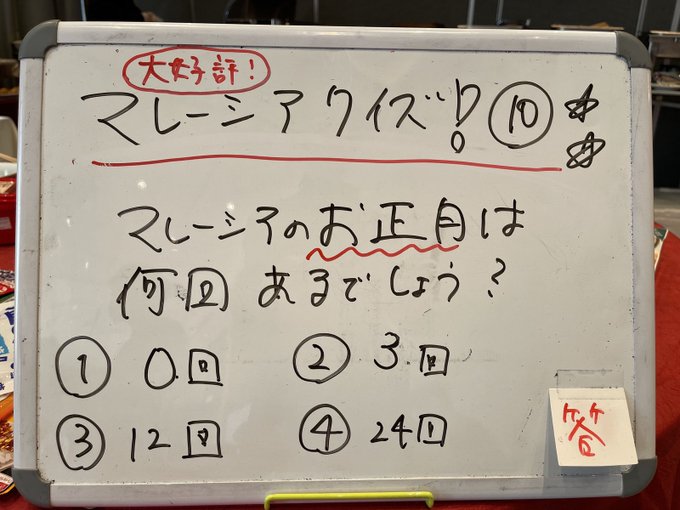 大好評!
マレーシアクイズ!? ⑩ ☆
☆
マレーシアのお正月は
何回あるでしょう?
① 0回 ② 3回
③ 12回 ④ 24回
答